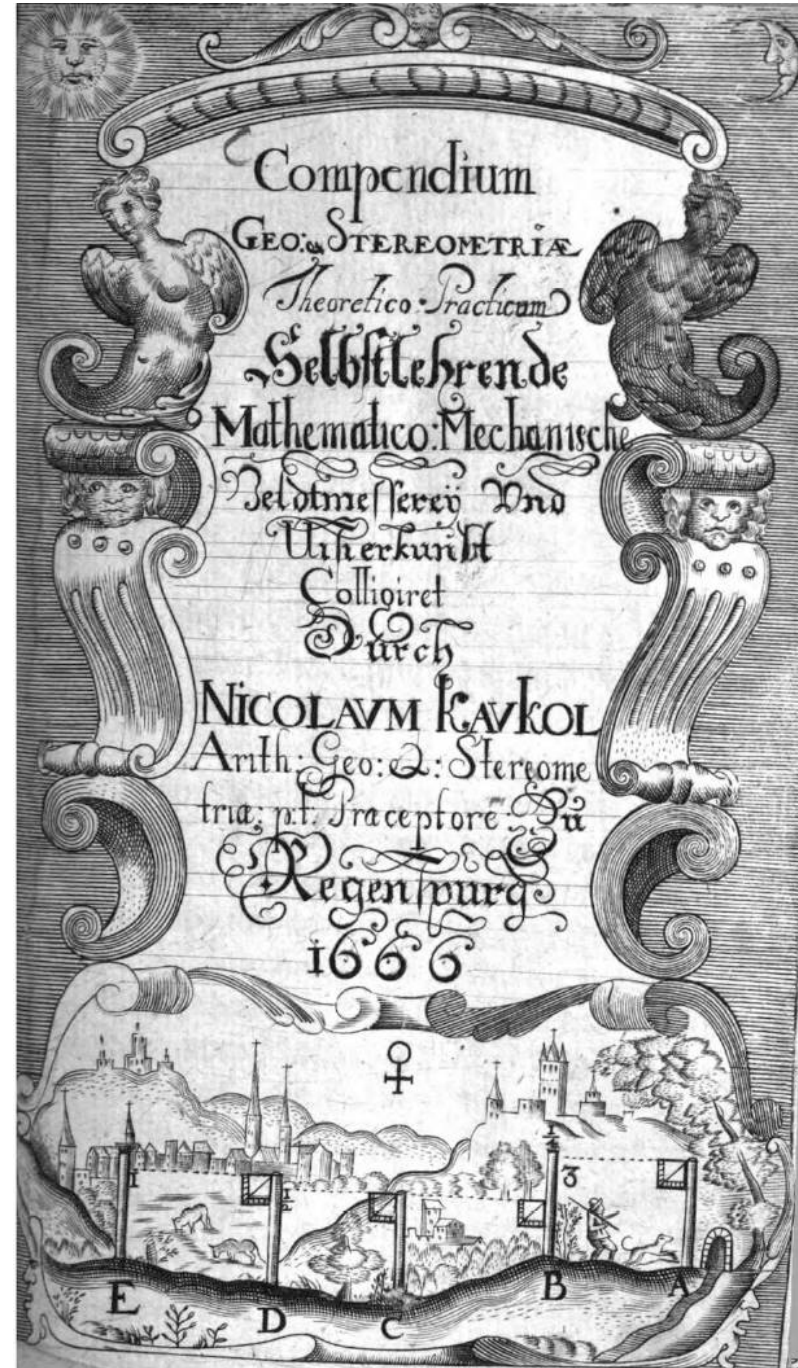 Compendium
GEO: & STEREOMETRIÆ
Theoretico: Practicum
Selbstlehrende
Mathematico: Mechanische
Veldtmesserey Vnd
Visierkunst
Colligiret
Durch
NICOLAVM KAVKOL
Arith: Geo: &: Stereome
tria: p.t. Præceptore: Zu
Regenspurg
1666
♀
1
3
E
D
C
B
A